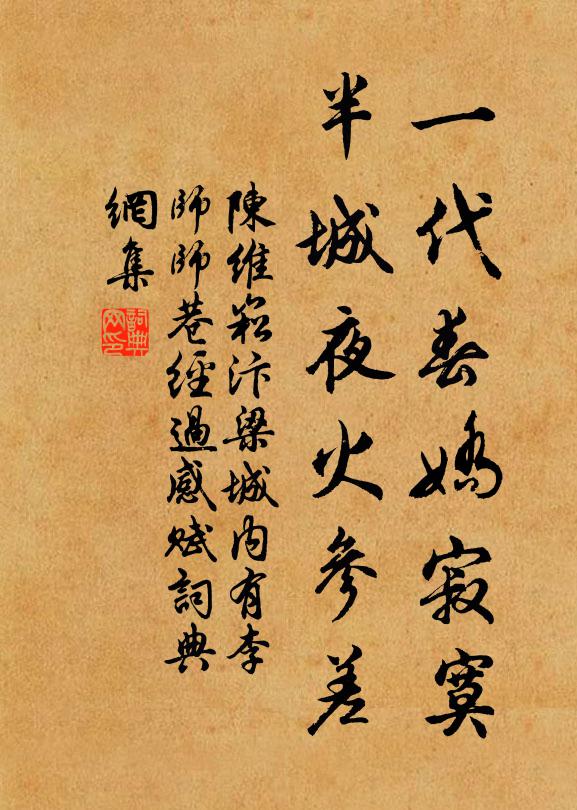 一代春嬌寂寞
半城夜火參差
陳維崧汴梁城内有李
師師巷經過感賦詞典
網集
詞典
文印